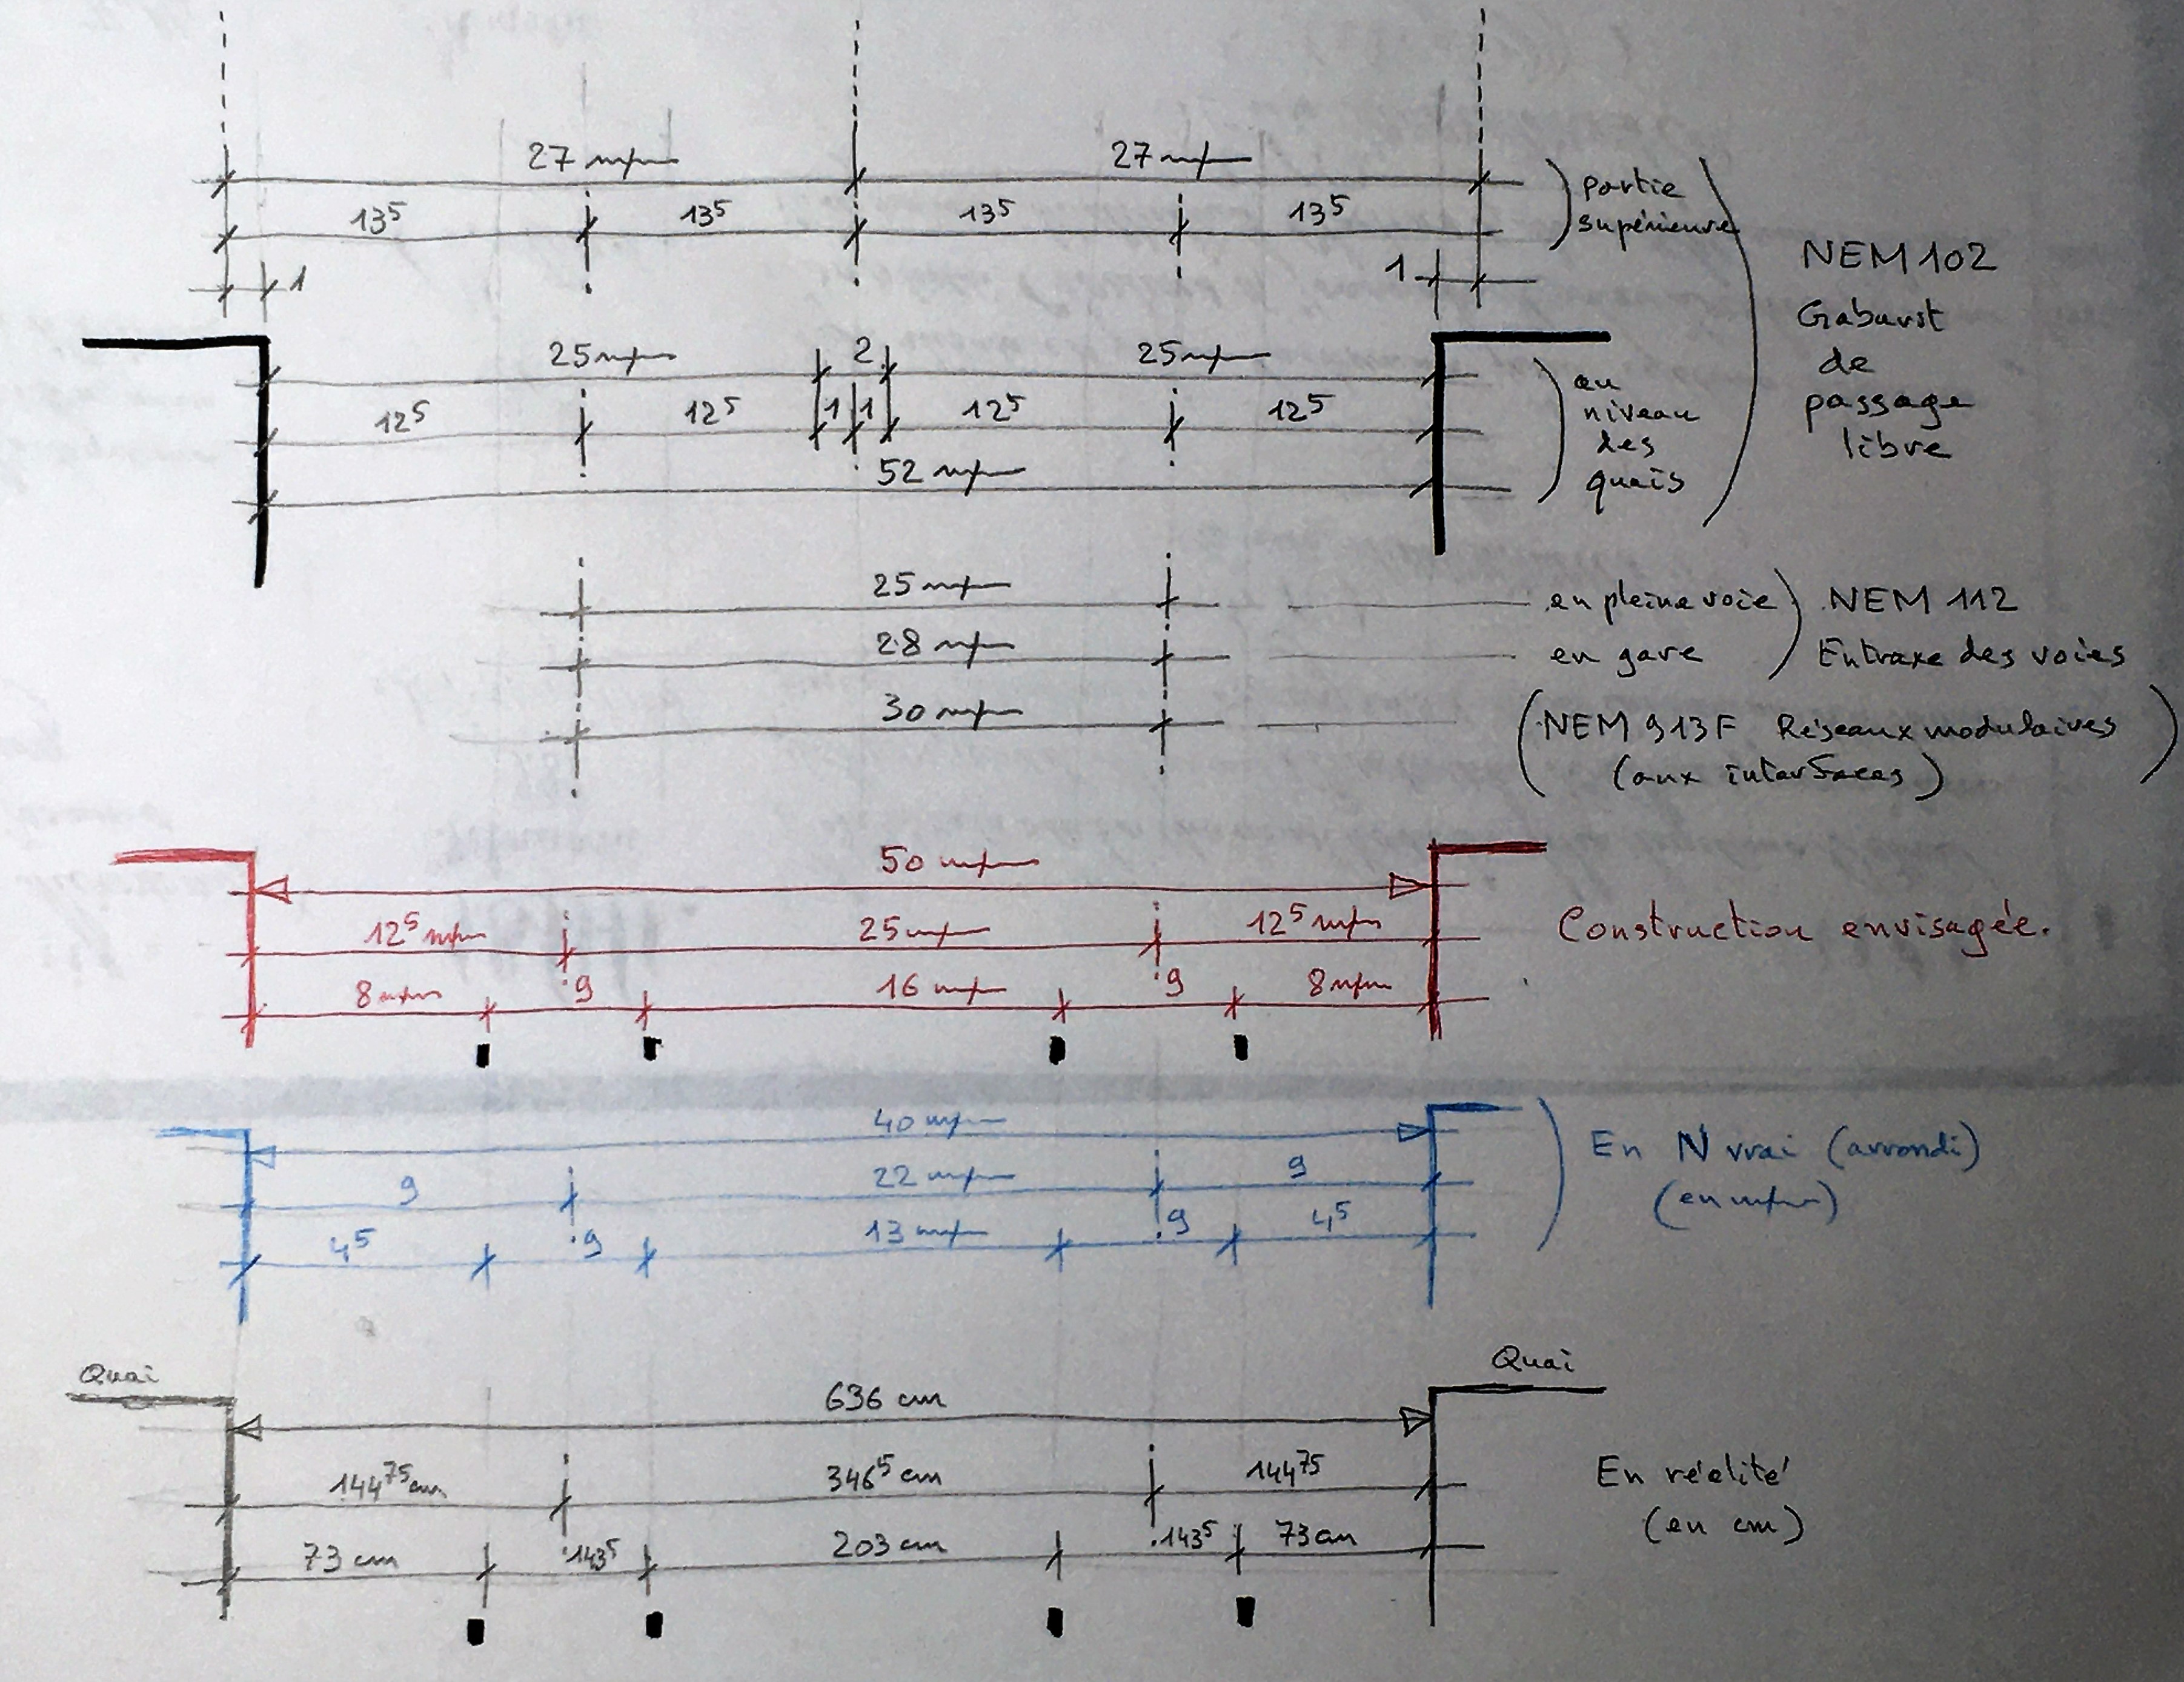 27 mm 27 mm
13⁵ 13⁵ 13⁵ 13⁵
partie
supérieure
1 1
NEM 102
Gabarit
de
passage
libre
25 mm 2 25 mm
12⁵ 12⁵ 1 1 12⁵ 12⁵
52 mm
au
niveau
des
quais
25 mm en pleine voie NEM 112
28 mm en gare Entraxe des voies
30 mm (NEM 913F Réseaux modulaires)
(aux interfaces)
50 mm
12⁵ mm 25 mm 12⁵ mm
Construction envisagée.
8 mm 9 16 mm 9 8 mm
40 mm
En N vrai (arrondi)
9 22 mm 9
(en mm)
4⁵ 9 13 mm 9 4⁵
Quai Quai
636 cm
144⁷⁵ cm 346⁵ cm 144⁷⁵
En réalité
(en cm)
73 cm 143⁵ 203 cm 143⁵ 73 cm